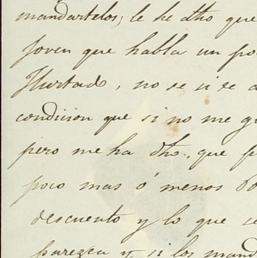 mandartelos; le he dho que
joven que habla un po
Hurtado, no se si se a
condicion que si no me g
pero me ha dho., que p
poco mas ó menos 60
descuento y lo que se
parezca y si los mand